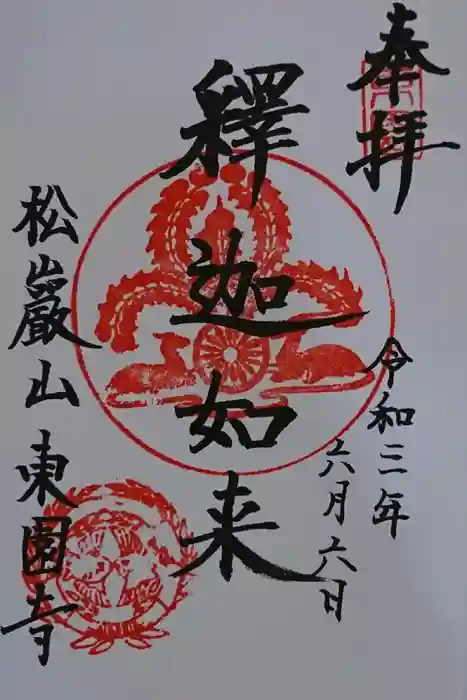 奉拝
令和三年
六月六日
釋迦如来
松巖山
東園寺